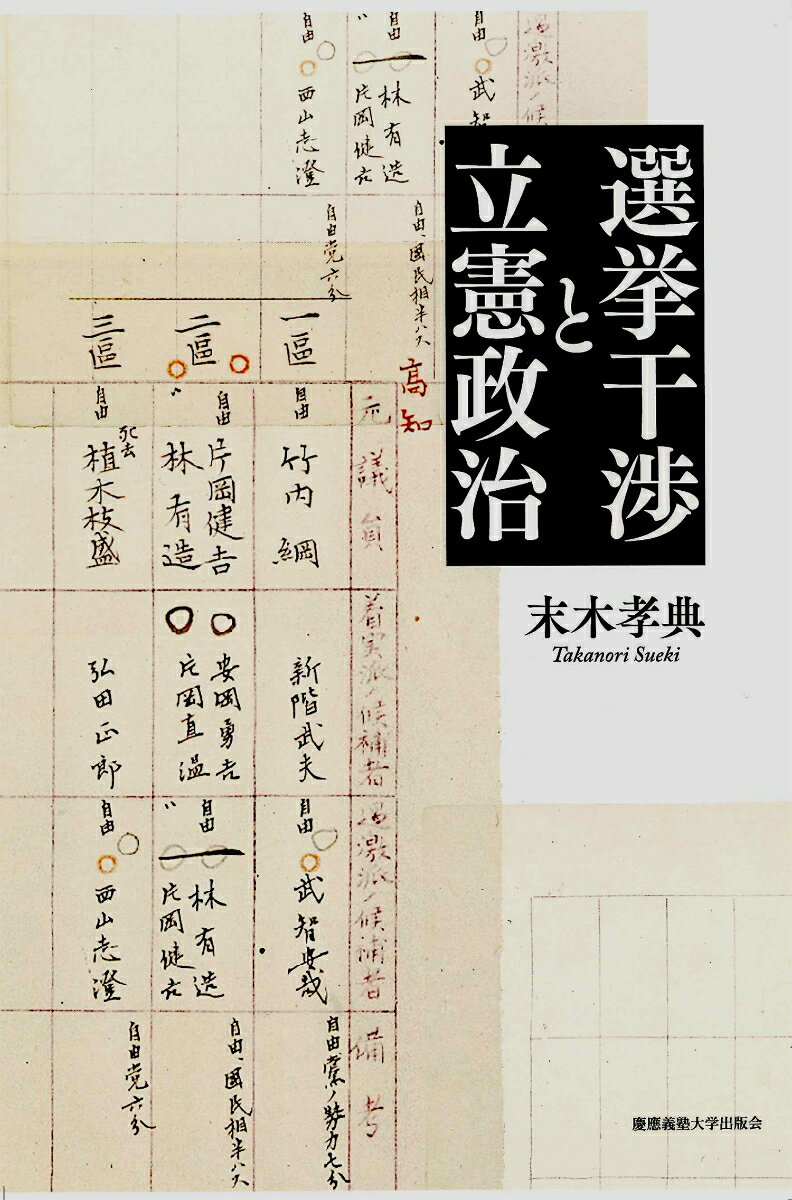 選挙干渉
と
立憲政治
末木孝典
Takanori Sueki
慶應義塾大学出版会
武智
自由
林有造
片岡健吉
自由
西山志澄
自由、國民相半ハス
自由党六分
高知
元議員
着実派ノ候補者
過激派ノ候補者
備考
一區
自由
竹内綱
新階武夫
自由
武智安哉
自由党ノ勢力七分
二區
自由
片岡健吉
〃
林有造
安岡勇吉
片岡直温
自由
林有造
〃
片岡健吉
自由、國民相半ハス
三區
自由
死去
植木枝盛
弘田正郎
自由
西山志澄
自由党六分